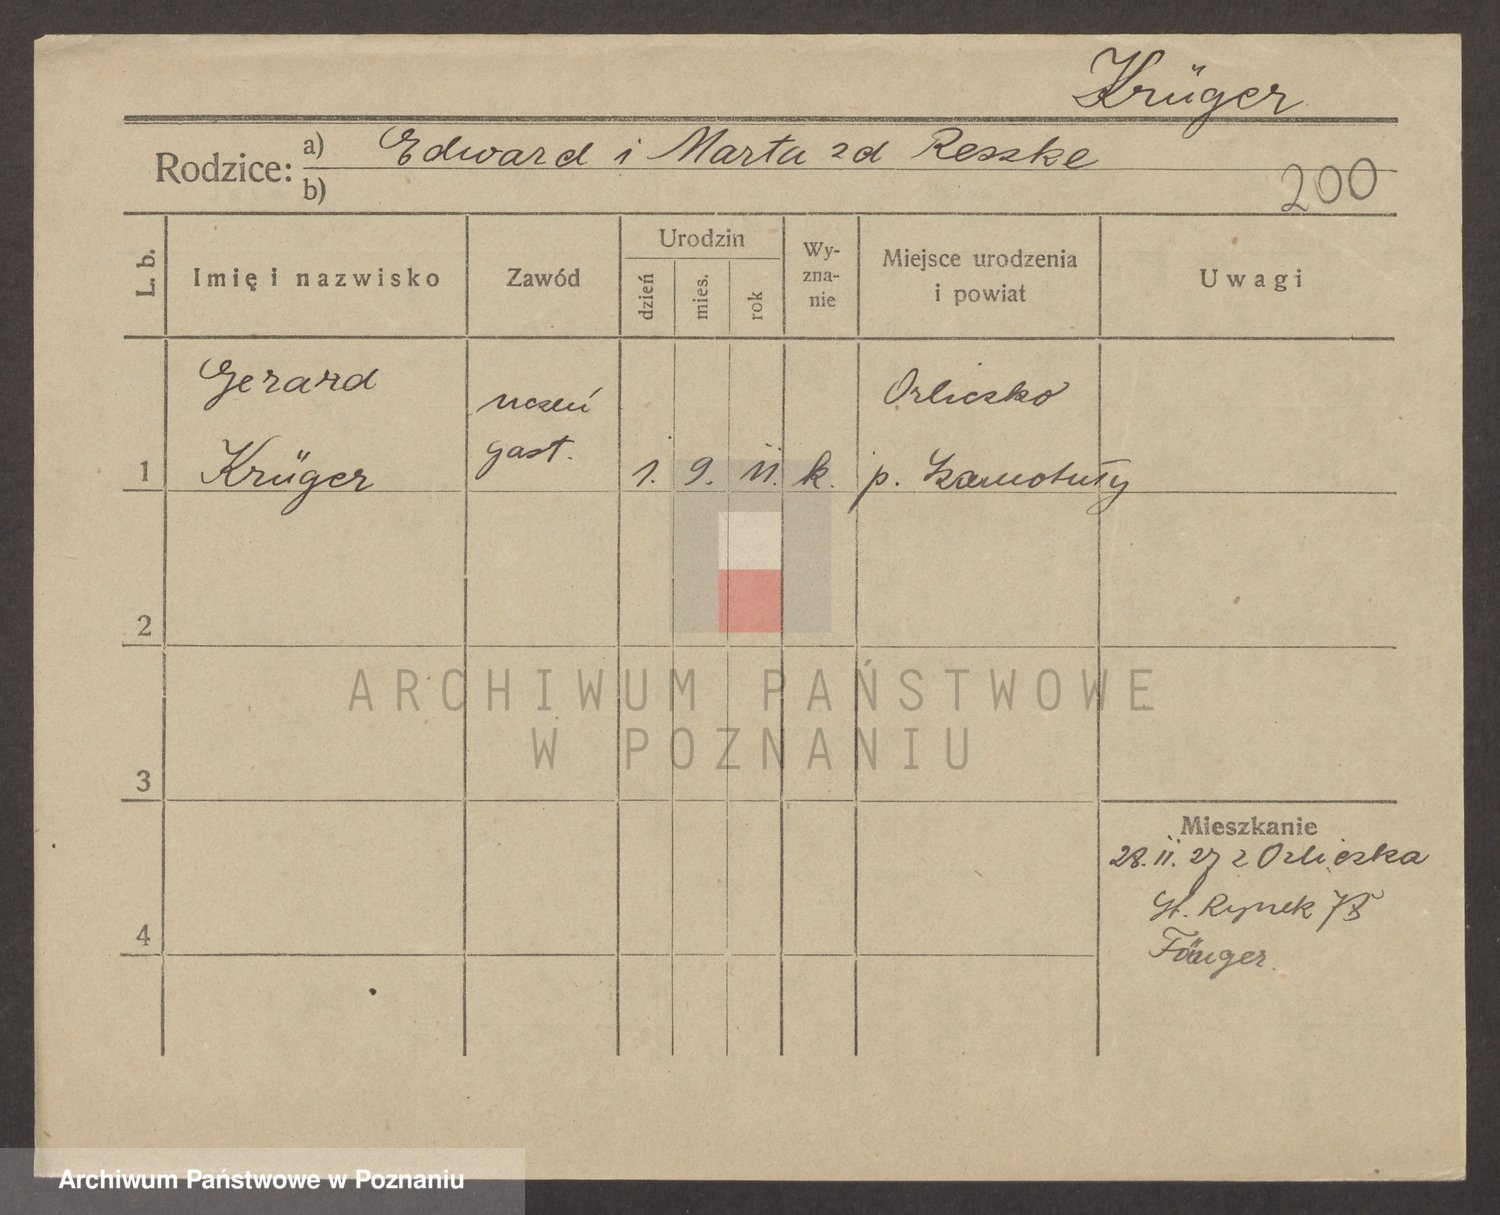 Krüger
Rodzice: a) Edward i Marta zd Reszke
b)
200
L. b.
Imię i nazwisko
Zawód
Urodzin
dzień
mies.
rok
Wy-
zna-
nie
Miejsce urodzenia
i powiat
Uwagi
Gerard
uczeń
Orliczko
1 Krüger
gast.
1. 9. 11. k. p. Szamotuły
2
ARCHIWUM PAŃSTWOWE
W POZNANIU
3
Mieszkanie
28. II. 27 z Orliczka
St. Rynek
4
Archiwum Państwowe w Poznaniu